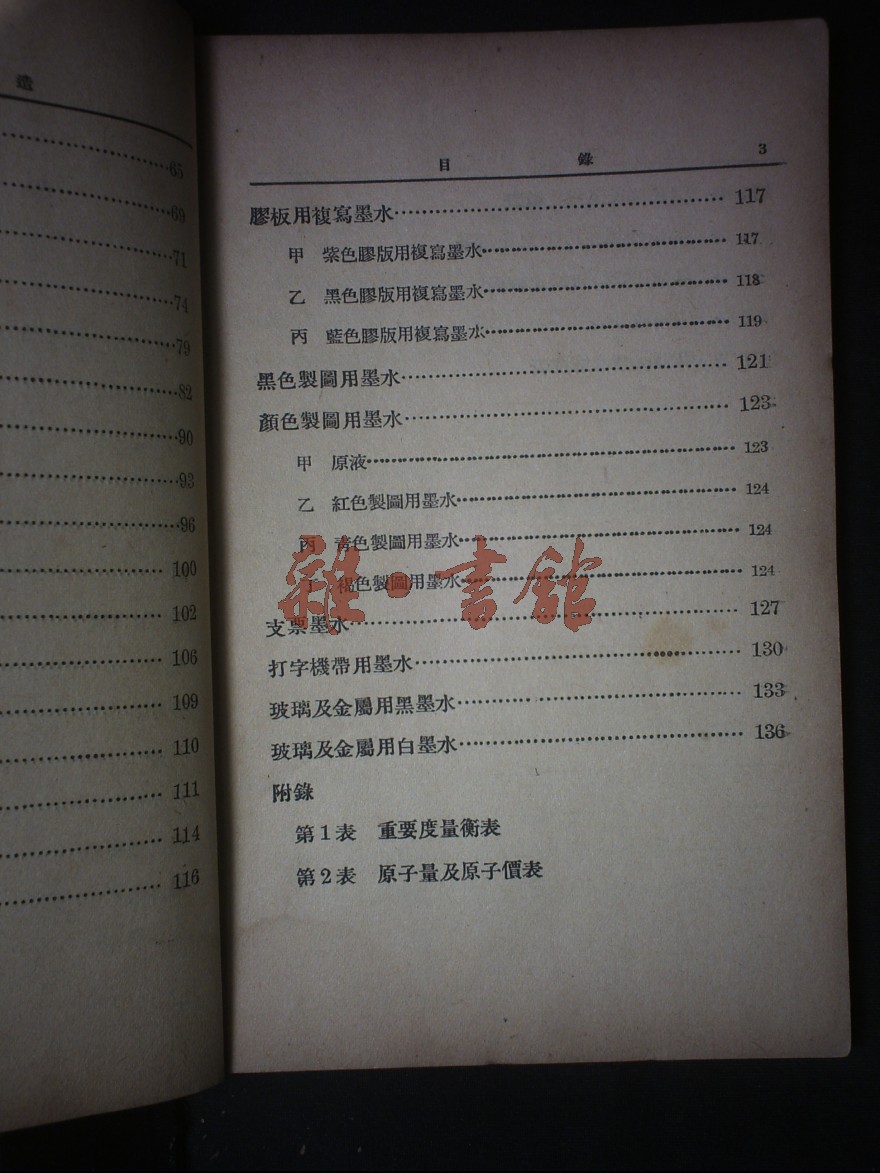 造
65
69
71
74
79
82
90
93
96
100
102
106
109
110
111
114
116
目 錄 3
膠板用複寫墨水 117
甲 紫色膠版用複寫墨水 117
乙 黑色膠版用複寫墨水 118
丙 藍色膠版用複寫墨水 119
黑色製圖用墨水 121
顏色製圖用墨水 123
甲 原液 123
乙 紅色製圖用墨水 124
丙 青色製圖用墨水 124
丁 褐色製圖用墨水 124
支票墨水 127
打字機帶用墨水 130
玻璃及金屬用黑墨水 133
玻璃及金屬用白墨水 136
附錄
第1表 重要度量衡表
第2表 原子量及原子價表
雜·書館